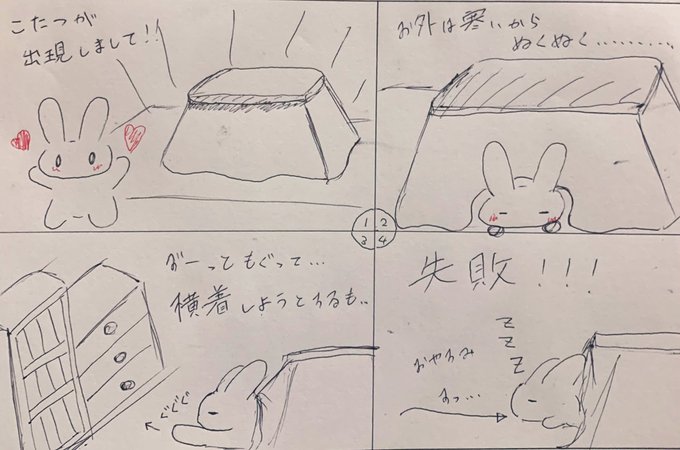 こたつが
出現しまして!!
お外は寒いから
ぬくぬく………
1 2
3 4
がーってもぐって…
横着しようとするも..
ぐぐぐ
失敗!!!
z
z
z
おやすみ
すっ…